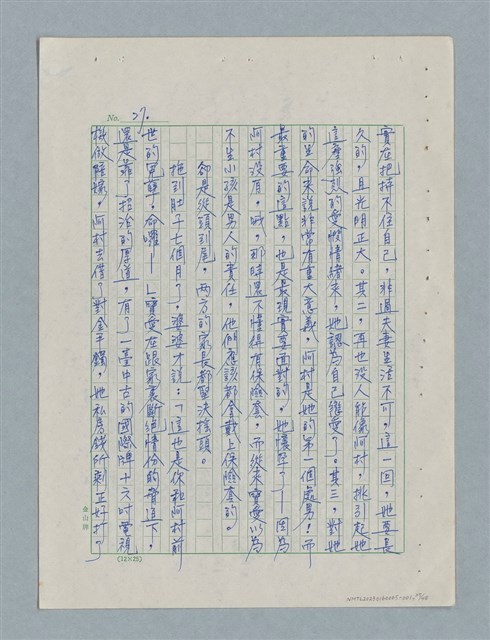 No. 27.
實在把持不住自己，非過夫妻生活不可。這一回，她要長
久的，且光明正大。其二，再也没人能像阿村，挑引起她
這麼強烈的愛恨情緒來，她認為自己戀愛了。其三，對她
的生命來說非常有重大意義，阿村是她的第一個處男！而
最重要的這點，也是最現實要面對的，她懷孕了──因為
阿村没有，哦，那時還不懂得有保險套，而從來寶愛以為
不生小孩是男人的責任，他們應該都會戴上保險套的。
卻是從頭到尾，兩方的家長都堅決搖頭。
拖到肚子七個月了，婆婆才說：「這也是你和阿村前
世的冤孽，命囉──」寶愛在跟家裏斷絕情份的當道下，
還是靠了招治的厚道，有了一臺中古的國際牌十六吋電視
機做嫁粧，阿村去借了對金手鐲，她私房錢所剩正好打了
金山牌
(12×25)